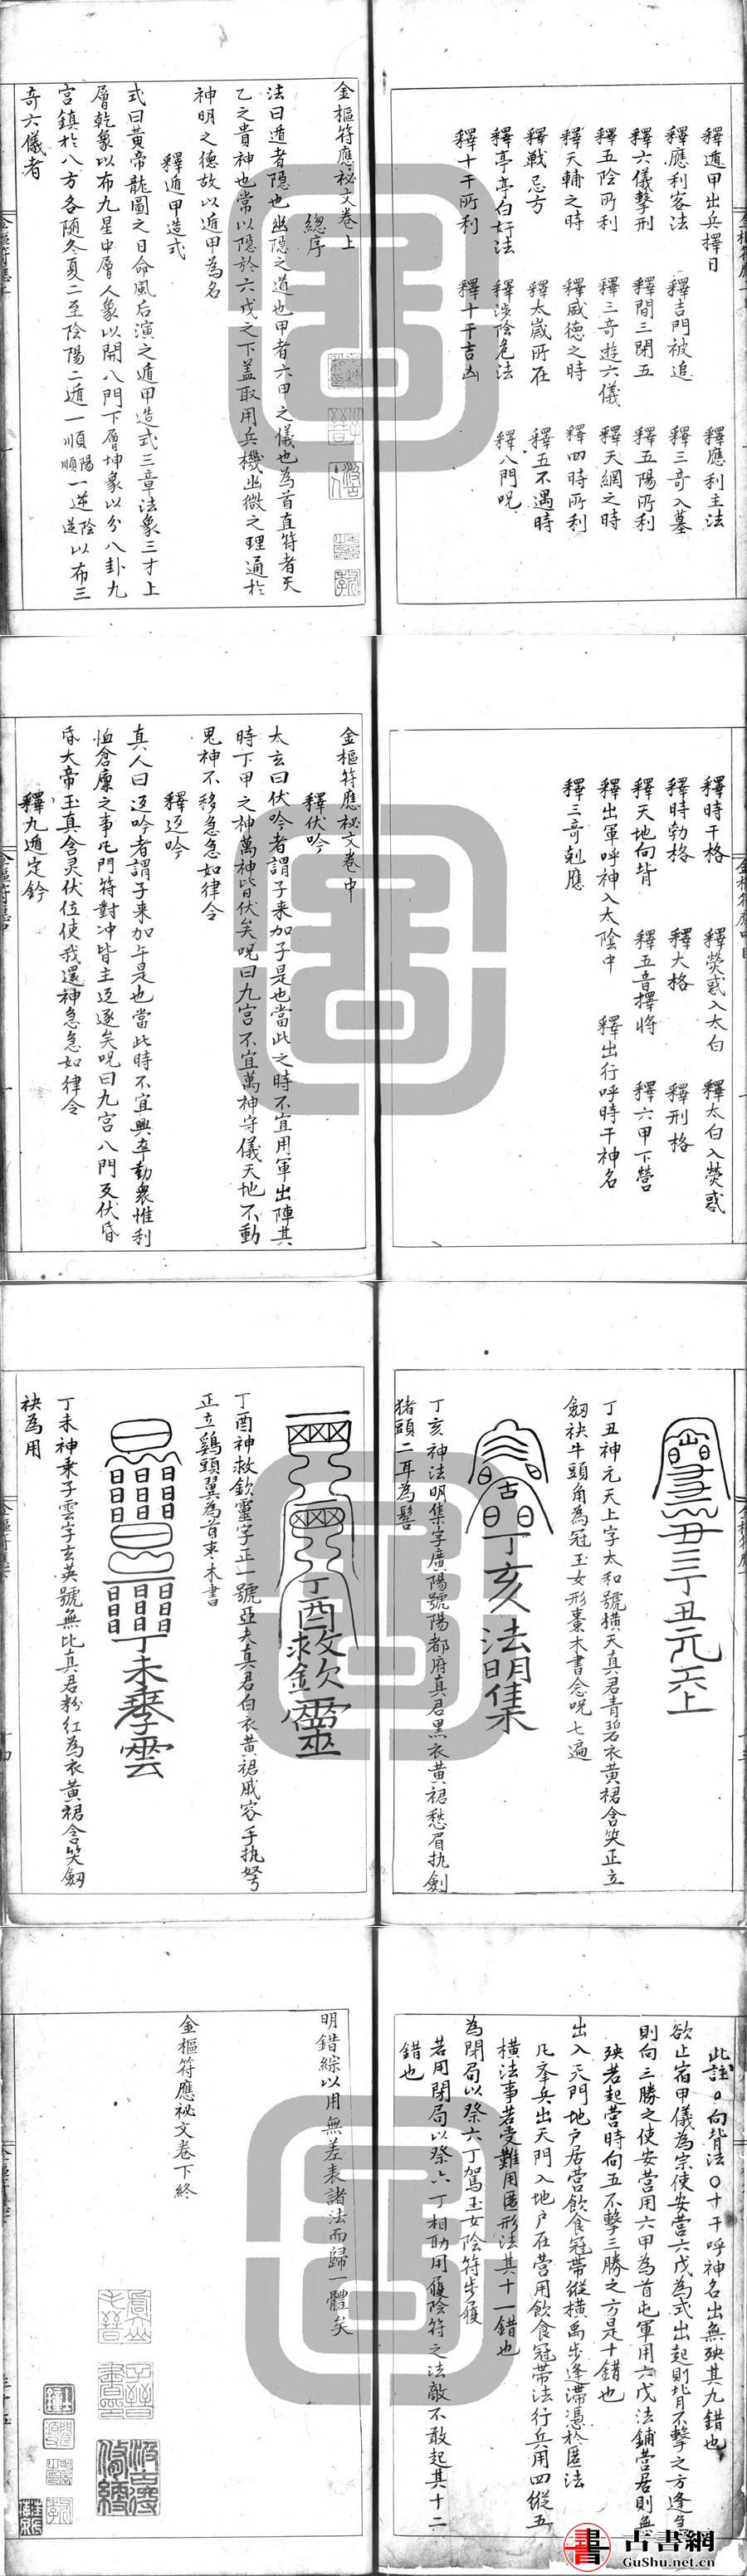 釋遁甲出兵擇日
釋應利客法 釋吉門被追 釋應利主法
釋六儀擊刑 釋間三閉五 釋三奇入墓
釋五陰所利 釋三奇遊六儀 釋五陽所利
釋天輔之時 釋威德之時 釋天網之時
釋戰忌方 釋太歲所在 釋四時所利
釋亭亭白奸法 釋涉陰危法 釋五不遇時
釋十干所利 釋十干吉凶 釋八門呪
金樞符應祕文卷上
總序
法曰遁者隱也幽隱之道也甲者六甲之儀也為首直符者天
乙之貴神也常以隱於六戊之下盖取用兵機幽微之理通於
神明之德故以遁甲為名
釋遁甲造式
式曰黃帝龍圖之日命風后演之遁甲造式三章法象三才上
層乾象以布九星中層人象以開八門下層坤象以分八卦九
宮鎮於八方各随冬夏二至陰陽二遁一順陽順一逆陰逆以布三
奇六儀者
釋時干格 釋熒惑入太白 釋太白入熒惑
釋時勃格 釋大格 釋刑格
釋天地向背 釋五音擇將 釋六甲下營
釋出軍呼神入太陰中 釋出行呼時干神名
釋三奇剋應
金樞符應祕文卷中
釋伏吟
太玄曰伏吟者謂子来加子是也當此之時不宜用軍出陣其
時下甲之神萬神皆伏矣呪曰九宮不宜萬神守儀天地不動
鬼神不移急急如律令
釋返吟
真人曰返吟者謂子来加午是也當此時不宜興卒動衆惟利
恤倉廩之事凡門符對冲皆主返逐矣呪曰九宮八門反伏昏
昏大帝玉真含灵伏位使我還神急急如律令
釋九遁定鈐
丁丑元天上
丁丑神元天上字太和號橫天真君青碧衣黃裙含笑正立
劔袂牛頭角為冠玉女形棗木書念呪七遍
丁亥法明集
丁亥神法明集字廣陽號陽都府真君黑衣黃裙愁眉执劍
猪頭二耳為髻
丁酉救欽靈
丁酉神救欽靈字正一號亞夫真君白衣黃裙戚容手执弩
正立鷄頭翼為首枣木書
丁未乘子雲
丁未神乘子雲字玄英號無比真君粉紅為衣黃裙含笑劔
袂為用
此註○向背法○十干呼神名出無殃其九錯也
欲止宿甲儀為宗使安營六戊為式出起則背不擊之方逢急
則向三勝之使安營用六甲為首屯軍用六戊法鋪營居則無
殃若起營時向五不擊三勝之方是十錯也
出入天門地户居营飲食冠帶縱橫禹步逢滞憑於匿法
凡夲兵出天門入地户在营用飲食冠帶法行兵用四縱五
橫法事若受難用匿形法其十一錯也
為閉局以祭六丁駕玉女陰符步履
若用閉局以祭六丁相助用履陰符之法敵不敢起其十二
錯也
明錯綜以用無差表諸法而歸一體矣
金樞符應祕文卷下終
書 古書網
GuShu.net.cn